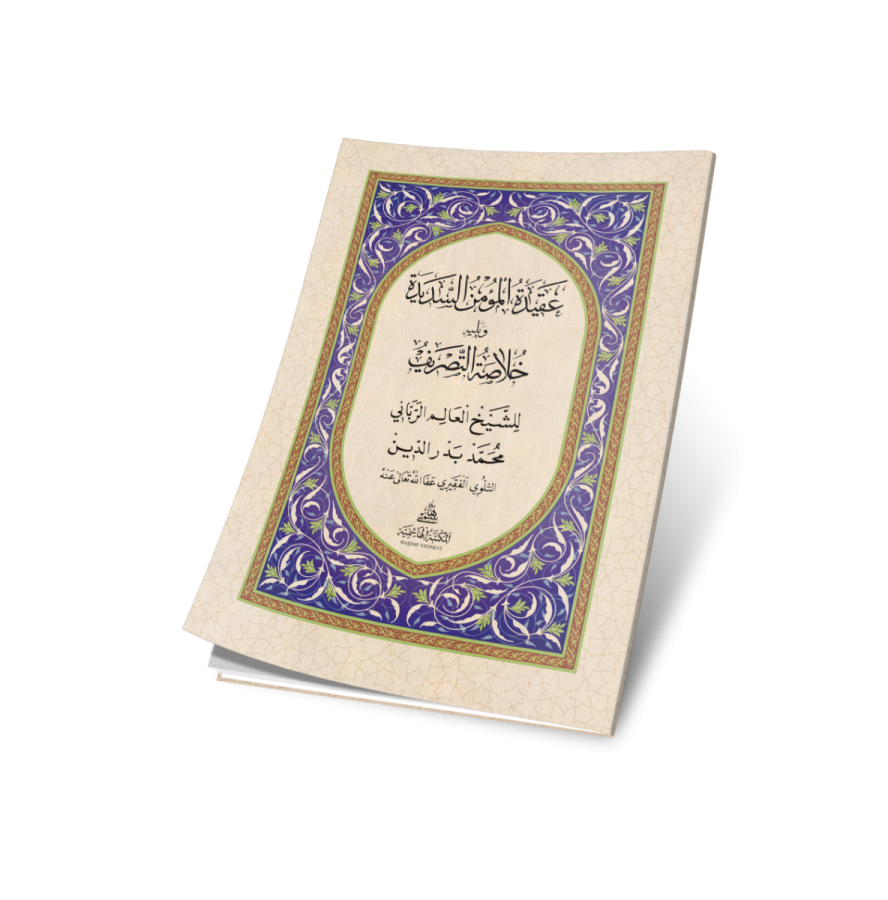 عَقِيْدَةُ الْمُؤْمِنُ السَّدِيْدَةِ
وَيَلِيهِ
خُلَاصَةُ التَّصْرِيْفُ
لِلشَّيْخِ الْعَالِمِ الرَّبَّانِي
مُحَمَّدْ بَدْرِ الدِّيْنِ
التِّلَّوِي الْفَقِيْرِي عَفَا اللّٰهُ تَعَالٰى عَنْهُ
هاشمي
المكتبة الهاشمية
HAŞİMİ YAYINEVİ